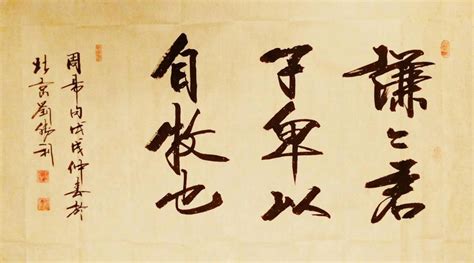 謙々君
子卑以
自牧也
周易句戊戌仲春於
北京劉利